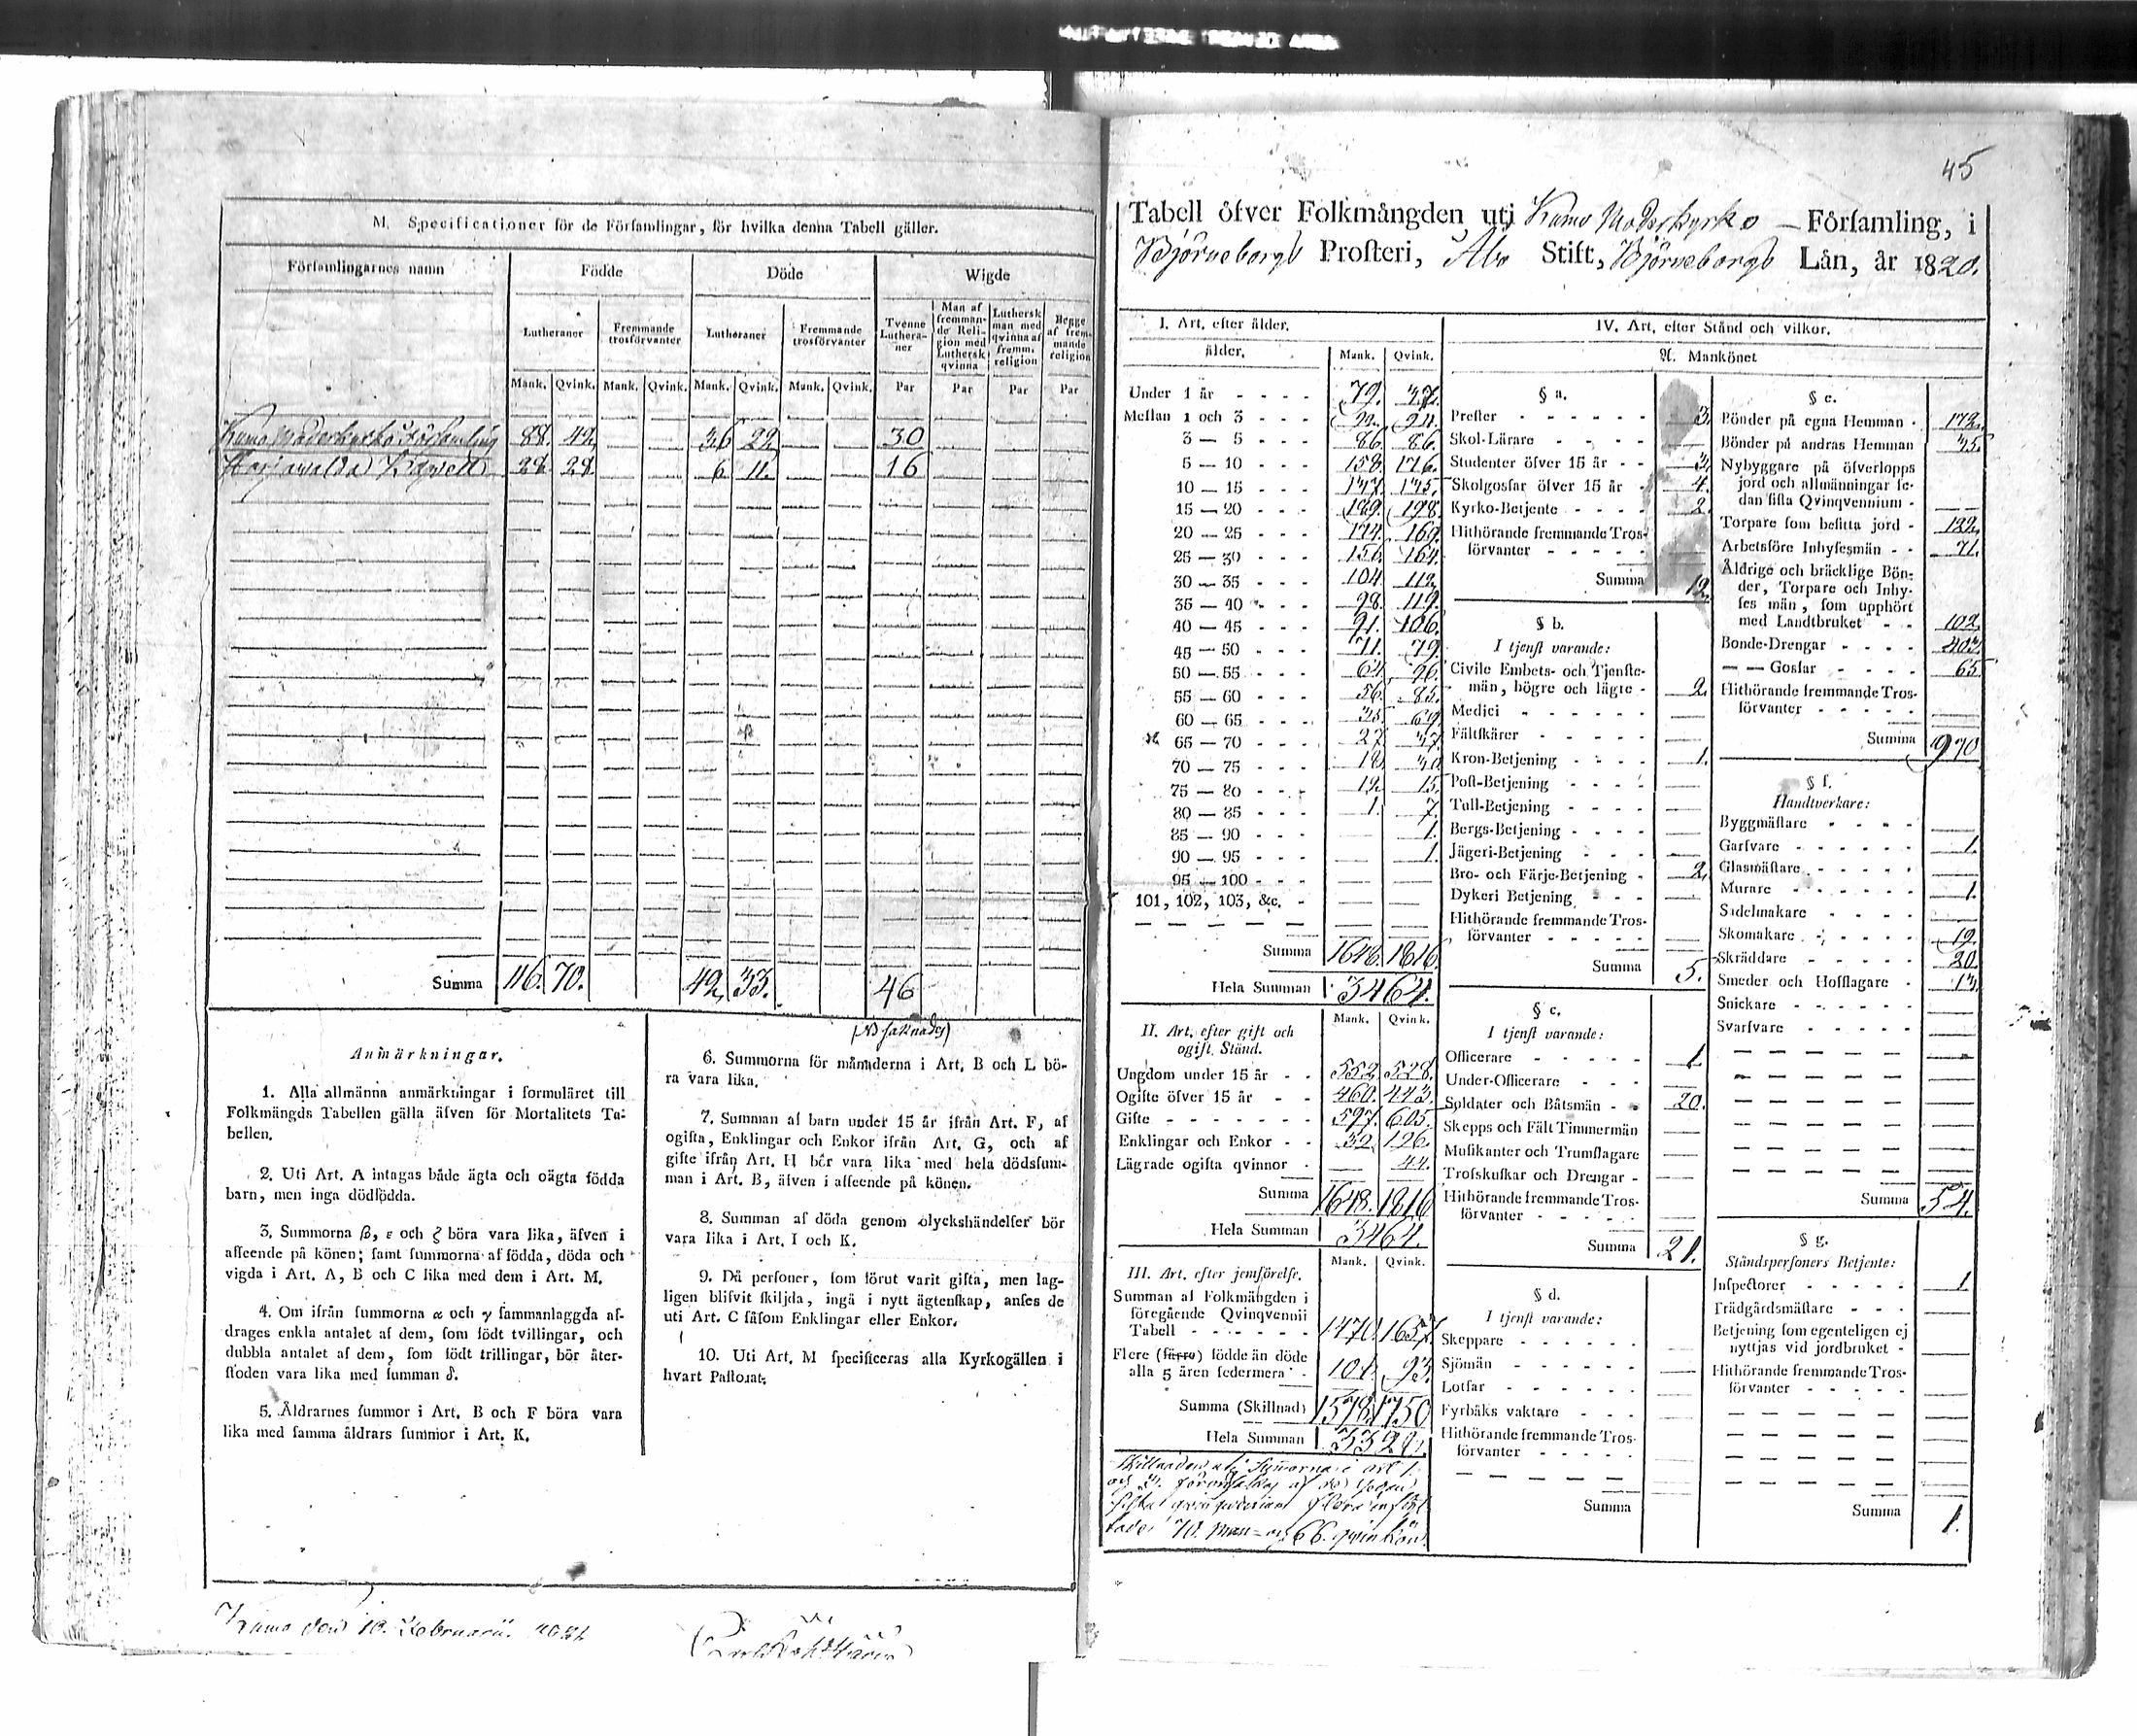 M. Specificationer för de Församlingar, för hvilka denna Tabell gäller.
Församlingarnes namn Födde Döde Wigde
Lutheraner Fremmande trosförvanter Lutheraner Fremmande trosförvanter Tvenne Lutheraner Man af fremmande Religion med Luthersk qvinna Luthersk man med qvinna af fremm. religion Begge af fremmande religion
Mank. Qvink. Mank. Qvink. Mank. Qvink. Mank. Qvink. Par Par Par Par
Kumo Moderkyrko Församling 88. 42 36 22 30
Harjawalda Kapell 28 28 6 11. 16
Summa 116. 70. 42 33. 46
Anmärkningar.
1. Alla allmänna anmärkningar i formuläret till
Folkmängds Tabellen gälla äfven för Mortalitets Ta-
bellen.
2. Uti Art. A intagas både ägta och oägta födda
barn, men inga dödfödda.
3. Summorna β, ε och ζ böra vara lika, äfven i
afseende på könen; samt summorna af födda, döda och
vigda i Art. A, B och C lika med dem i Art. M.
4. Om ifrån summorna α och γ sammanlaggda af-
drages enkla antalet af dem, som födt tvillingar, och
dubbla antalet af dem, som födt trillingar, bör åter-
stoden vara lika med summan δ.
5. Åldrarnes summor i Art. B och F böra vara
lika med samma åldrars summor i Art. K.
6. Summorna för månaderna i Art. B och L bö-
ra vara lika.
7. Summan af barn under 15 år ifrån Art. F, af
ogifta, Enklingar och Enkor ifrån Art. G, och af
gifte ifrån Art. H bör vara lika med hela dödssum-
man i Art. B, äfven i afseende på könen.
8. Summan af döda genom olyckshändelser bör
vara lika i Art. I och K.
9. Då personer, som förut varit gifta, men lag-
ligen blifvit skiljda, ingå i nytt ägtenskap, anses de
uti Art. C såsom Enklingar eller Enkor.
10. Uti Art. M specificeras alla Kyrkogällen i
hvart Pastorat.
Kumo den 10. Februarii
45
Tabell öfver Folkmängden uti Kumo Moderkyrko — Församling, i
Björneborgs Prosteri, Åbo Stift, Björneborgs Län, år 1820.
I. Art. efter ålder.
ålder. Mank. Qvink.
Under 1 år 79. 37.
Mellan 1 och 3
3 — 5 86. 86.
5 — 10 158. 176.
10 — 15
15 — 20 189. 198.
20 — 25 174. 169.
25 — 30 156. 164.
30 — 35 104. 112.
35 — 40 98. 119.
40 — 45 91. 106.
45 — 50 71. 79.
50 — 55 64. 96.
55 — 60 56. 85.
60 — 65 35. 69.
65 — 70 27. 37.
70 — 75 18. 30.
75 — 80 12. 15.
80 — 85 1. 7.
85 — 90 1.
90 — 95 1.
95 — 100
101, 102, 103, &c.
Summa 1648. 1816.
Hela Summan 3464.
II. Art. efter gift och
ogift Stånd.
Mank. Qvink.
Ungdom under 15 år 552. 528.
Ogifte öfver 15 år 460. 443.
Gifte 597. 605.
Enklingar och Enkor 32. 126.
Lägrade ogifta qvinnor
Summa 1648. 1816
Hela Summan 3464.
III. Art. efter jemförelse.
Mank. Qvink.
Summan af Folkmängden i
föregående Qvinqvennii
Tabell 1470. 1657.
Flere (färre) födde än döde
alla 5 åren sedermera 93.
Summa (Skillnad) 1578. 1750
Hela Summan 3328.
70. man- och 66. qvinkön.
IV. Art. efter Stånd och vilkor.
A. Mankönet
§ a.
Prester 3.
Skol-Lärare
Studenter öfver 15 år 3.
Skolgossar öfver 15 år 4.
Kyrko-Betjente 2.
Hithörande fremmande Tros-
förvanter
Summa 12.
§ b.
I tjenst varande:
Civile Embets- och Tjenste-
män, högre och lägre 2.
Medici
Fältskärer
Kron-Betjening 1.
Post-Betjening
Tull-Betjening
Bergs-Betjening
Jägeri-Betjening
Bro- och Färje-Betjening 2.
Dykeri Betjening
Hithörande fremmande Tros-
förvanter
Summa 5.
§ c.
I tjenst varande:
Officerare 1.
Under-Officerare
Soldater och Båtsmän 20.
Skepps och Fält Timmermän
Musikanter och Trumslagare
Trosskuskar och Drengar
Hithörande fremmande Tros-
förvanter
Summa 21.
§ d.
I tjenst varande:
Skeppare
Sjömän
Lotsar
Fyrbåks vaktare
Hithörande fremmande Tros-
förvanter
Summa
§ e.
Bönder på egna Hemman 172.
Bönder på andras Hemman 35.
Nybyggare på öfverlopps
jord och allmänningar se-
dan sista Qvinqvennium
Torpare som besitta jord 122.
Arbetsföre Inhysesmän 71.
Åldrige och bräcklige Bön-
der, Torpare och Inhy-
ses män, som upphört
med Landtbruket 102.
Bonde-Drengar 403.
— — Gossar 65
Hithörande fremmande Tros-
förvanter
Summa 970
§ f.
Handtverkare:
Byggmästare
Garfvare 1.
Glasmästare
Murare 1.
Sadelmakare
Skomakare 19.
Skräddare 20.
Smeder och Hofslagare 13.
Snickare
Svarfvare
Summa 54.
§ g.
Ståndspersoners Betjente:
Inspektorer 1.
Trädgårdsmästare
Betjening som egenteligen ej
nyttjas vid jordbruket
Hithörande fremmande Tros-
förvanter
Summa 1.